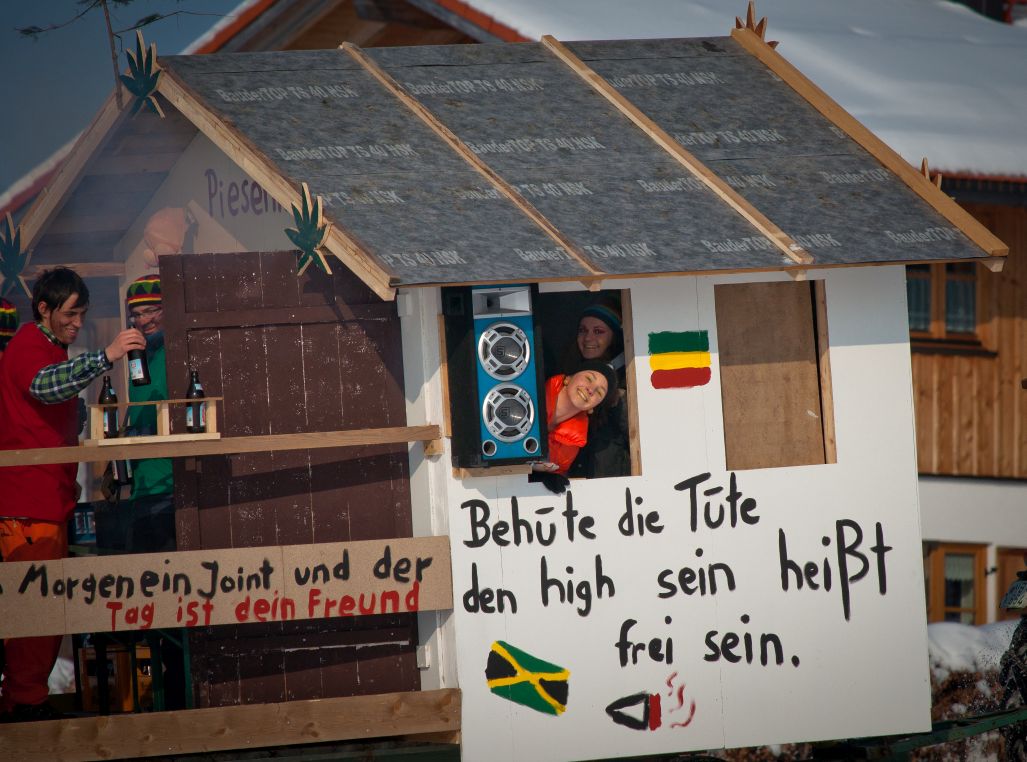 BauderTOP TS 40 NSK
BauderTOP TS 40 NSK
BauderTOP TS 40 NSK
BauderTOP TS 40 NSK
BauderTOP TS 40 NSK
BauderTOP TS 40 NSK
TS 40 NSK
BauderTOP TS 40 NSK
BauderTOP
BauderTOP TS 40 NSK
BauderTOP TS 40 NSK
BauderTOP
Morgen ein Joint und der
Tag ist dein Freund
Behüte die Tüte
den high sein heißt
frei sein.